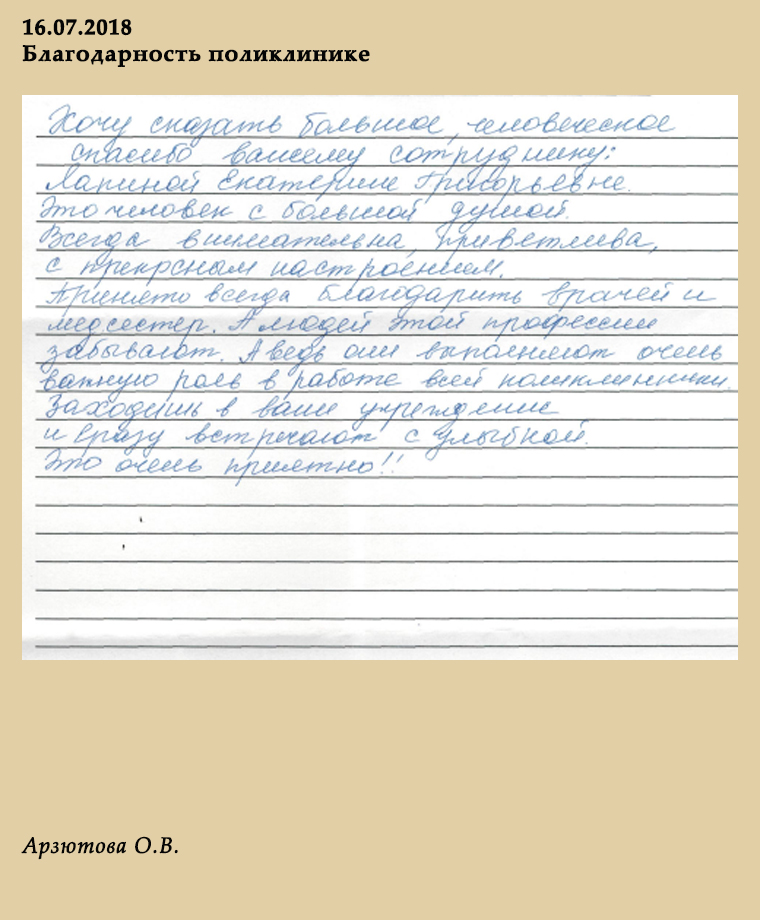 16.07.2018
Благодарность поликлинике
Хочу сказать большое, человеческое
спасибо вашему сотруднику:
Лапиной Екатерине Григорьевне.
Это человек с большой душой.
Всегда внимательна, приветлива,
с прекрсным настроением.
Принято всегда благодарить врачей и
медсестер. А людей этой професии
забывают. А ведь они выполняют очень
важную роль в работе всей поликлинники.
Заходишь в ваше учреждение
и сразу встречают с улыбкой.
Это очень приятно!!
Арзютова О.В.